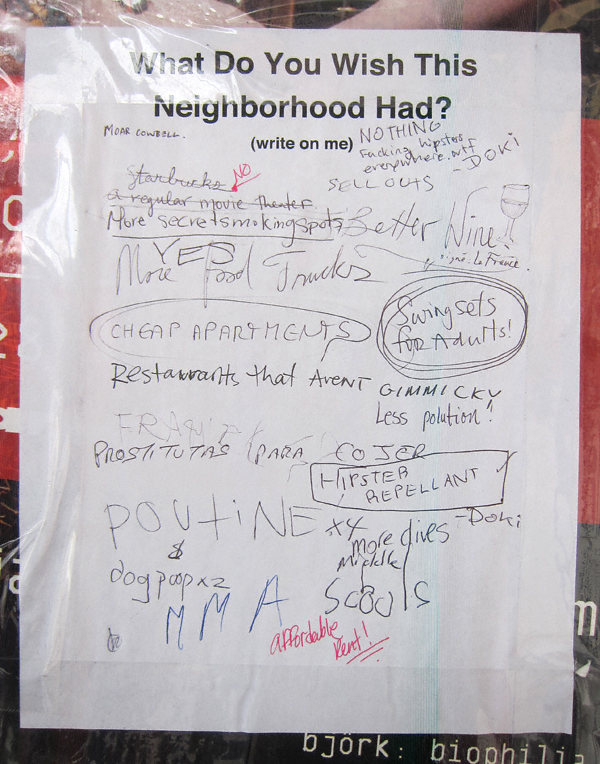 What Do You Wish This
Neighborhood Had?
(write on me)
MOAR COWBELL.
NOTHING
Fucking hipsters
everywhere. wtf
- DOKI
SELL OUTS
Starbucks
NO
a regular movie theater
More secret smoking spots
Better Wine!
signé. La France.
YES
More Food Trucks
CHEAP APARTMENTS
Swingsets
for Adults!
Restaurants that ARENT GIMMICKY
Less polution!
PROSTITUTAS PARA COJER
HIPSTER
REPELLANT
- DOKI
POUTINE x4
more dives
$
dog poop x2
middle
Scools
MMA
affordable
Rent!
björk: biophilia